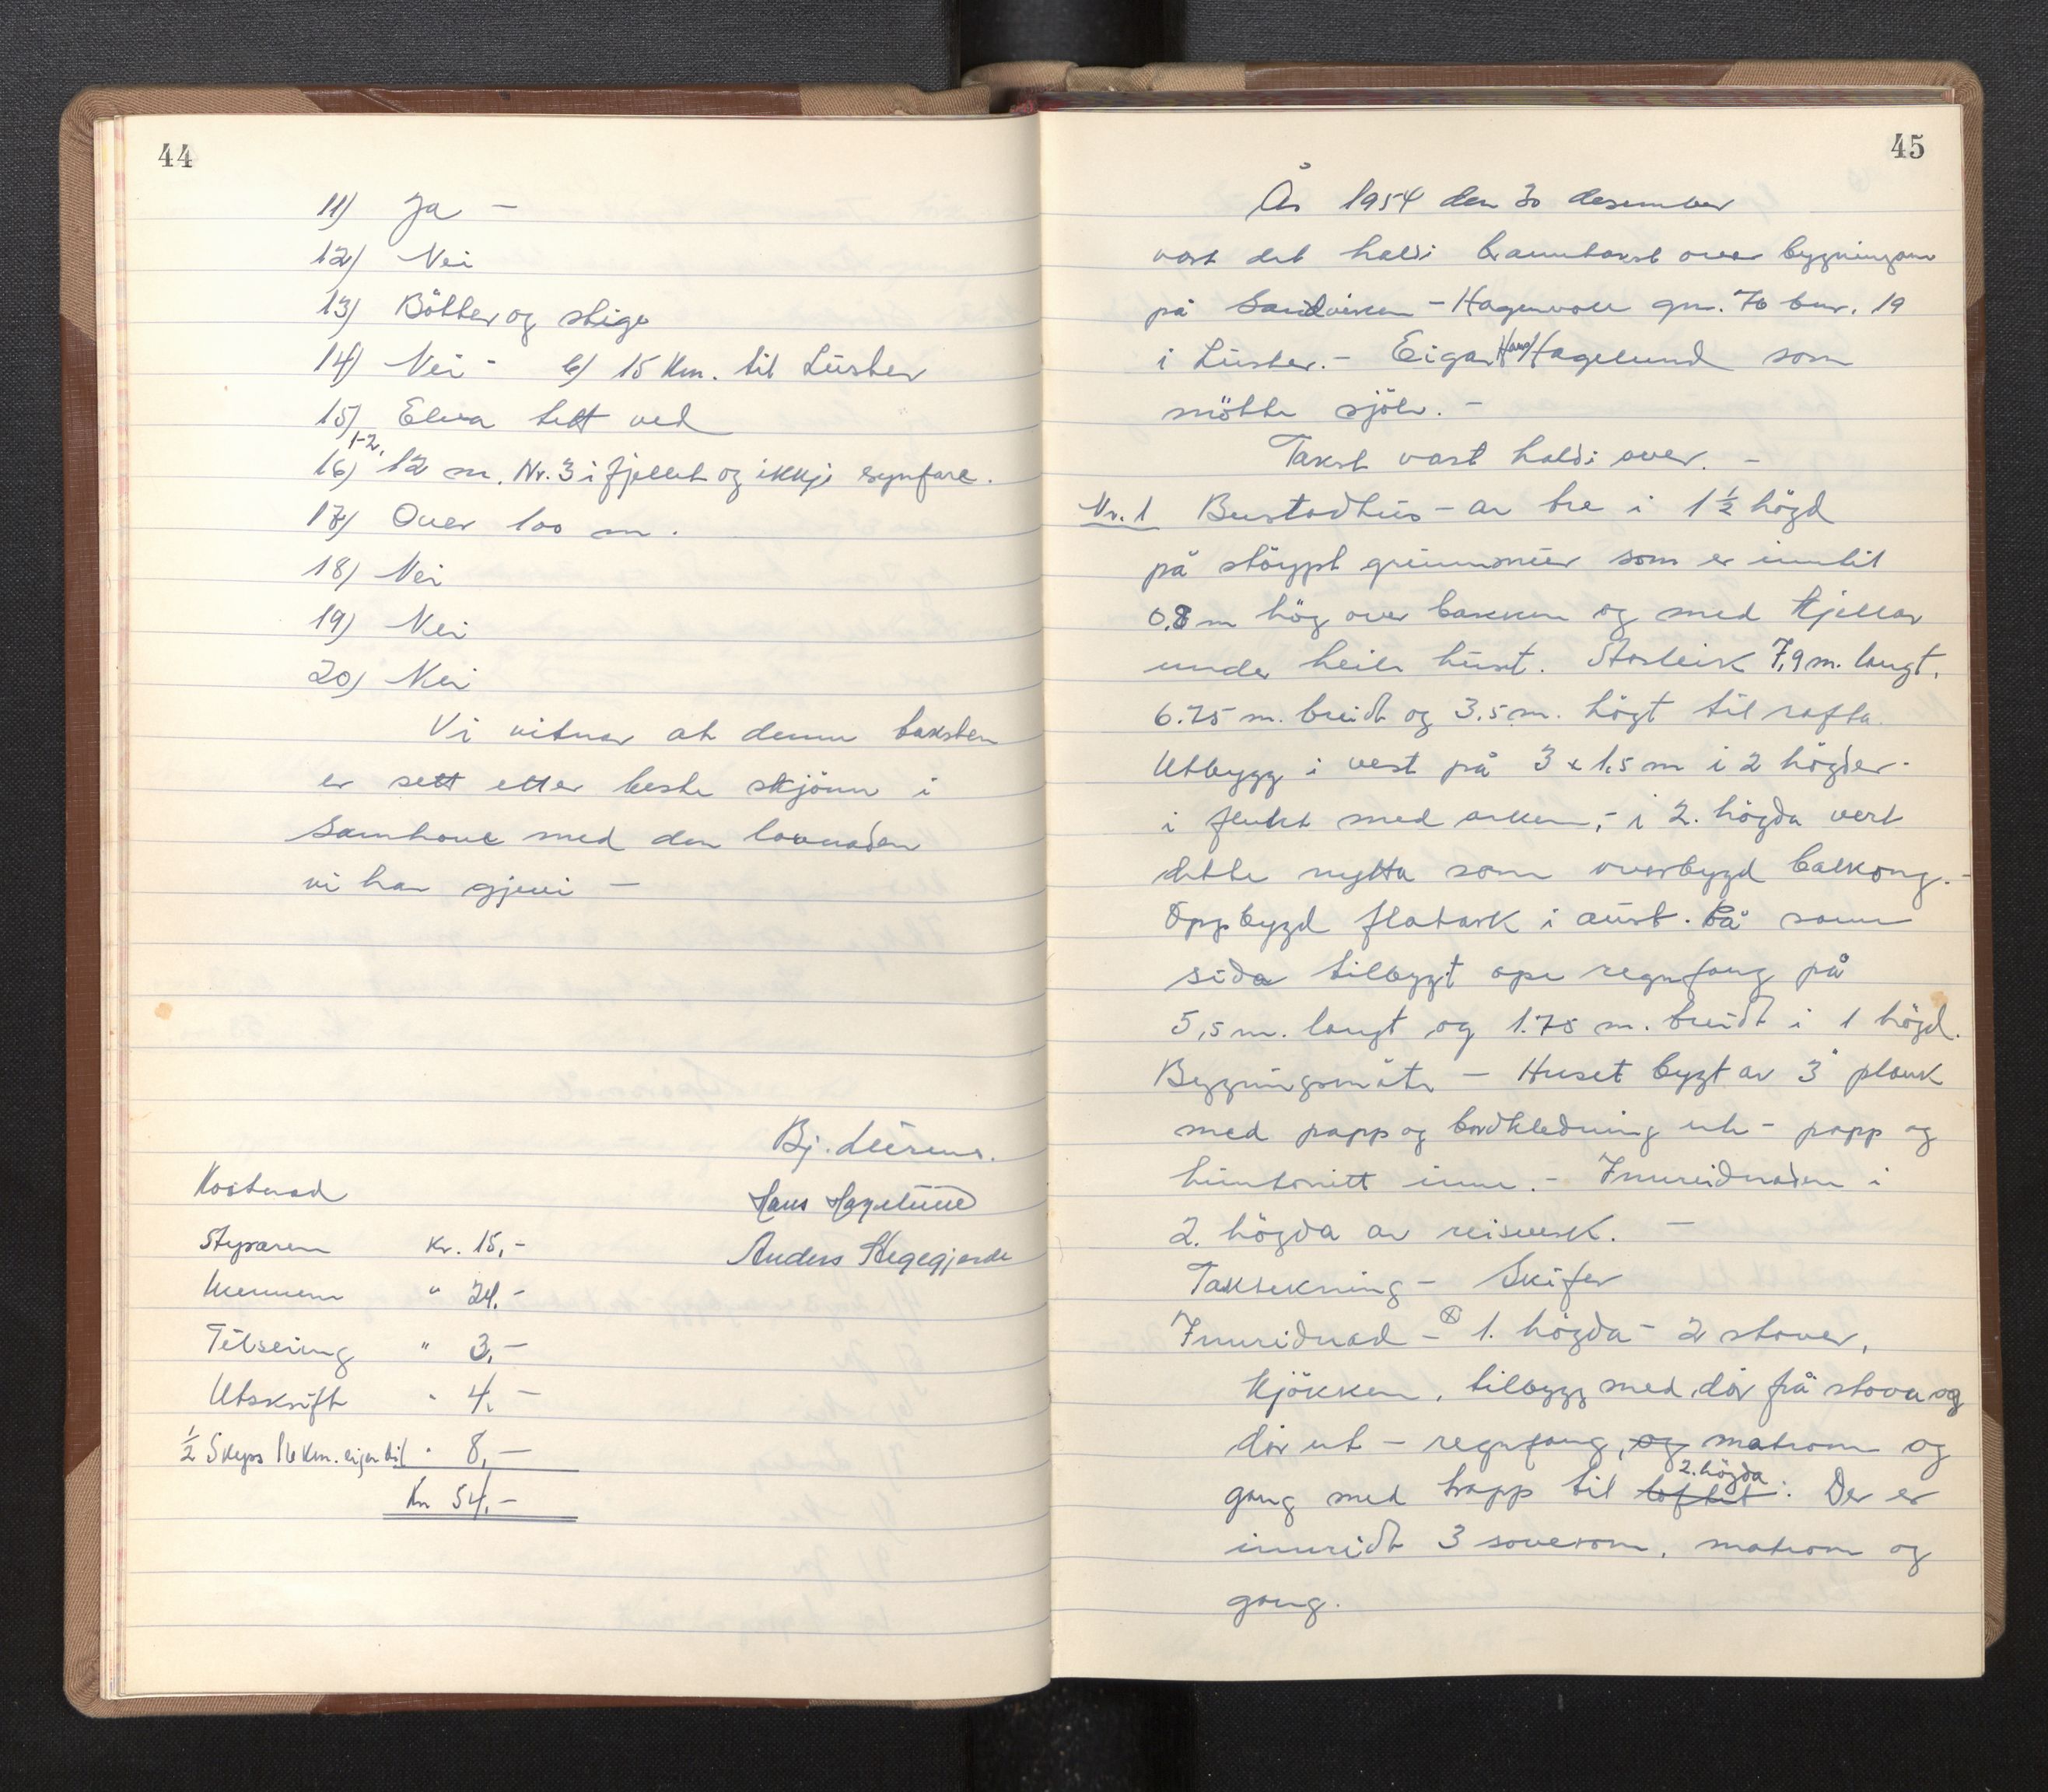 44
11) Ja -
12) Nei
13) Bötter og stige
14) Nei - b) 15 Km. til Lüster
15) Elva tett ved
1-2,
16) 12 m. Nr. 3 i fjellet og ikkje synfare.
17) Over 100 m.
18) Nei
19) Nei
20) Nei
Vi vitnar at denne taksten
er sett etter beste skjönn i
samhøve med den lovnaden
vi har gjevi -
Bj. Lürens.
Kostnad
Hans Hagelund
Styraren Kr. 15,-
Anders Hegegjerde
Mennene " 24.-
Tilseiing " 3,-
Utskrift " 4,-
1/2 Skyss 16 Km. eigen bil " 8,-
Kr 54,-
45
År 1954 den 30 desember
vart det haldi branntakst over bygningane
på Sandviken - Hagenvoll gnr. 70 bnr. 19
i Lüster. - Eigar Hans Hagelund som
mötte sjölv. -
Takst vart haldi over. -
Nr. 1 Bustadhüs - av tre i 1 1/2 högd
på stöypt grunnmür som er inntil
0,8 m hög over bakken og med kjellar
under heile hüset. Storleik 7,9 m. langt,
6.75 m. breidt og 3.5 m. högt til rafta.
Utbygg i vest på 3 x 1,5 m i 2 högder -
i flukt med arken, - i 2. högda vert
dette nytta som overbygd balkong. -
Oppbygd flatark i aüst. På same
sida tilbyggt ope regnfang på
5,5 m. langt og 1.75 m. breidt i 1 högd.
Bygningsmåte - Huset bygt av 3" plank
med papp og bordkledning ute - papp og
hüntonitt inne. - Innreidnaden i
2. högda av reisverk. -
Taktekning - Skifer
Innreidnad - ⊗ 1. högda - 2 stover,
kjökken, tilbygg med dör frå stova og
dör ut - regnfang, og matrom og
2. högda
gang med trapp til loftet. Der er
innreidt 3 soverom, matrom og
gang.